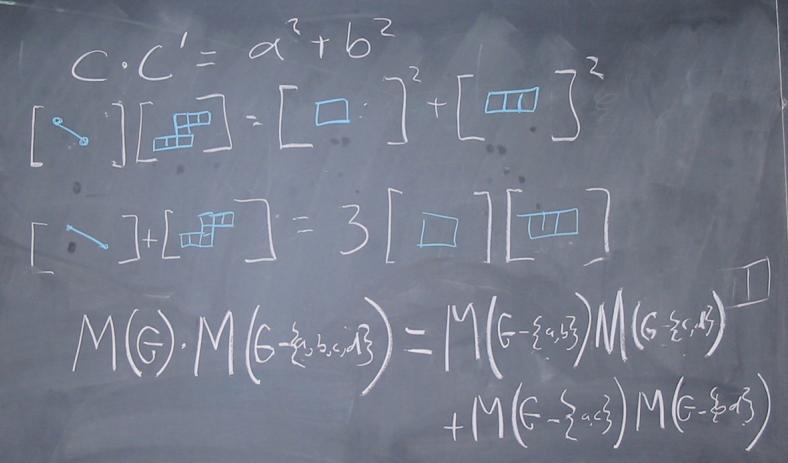 c·c' = a² + b²
[ ][ ] = [ ]² + [ ]²
[ ]+[ ] = 3[ ][ ]
M(G)·M(G-{a,b,c,d}) = M(G-{a,b})M(G-{c,d})
+M(G-{a,c})M(G-{b,d})